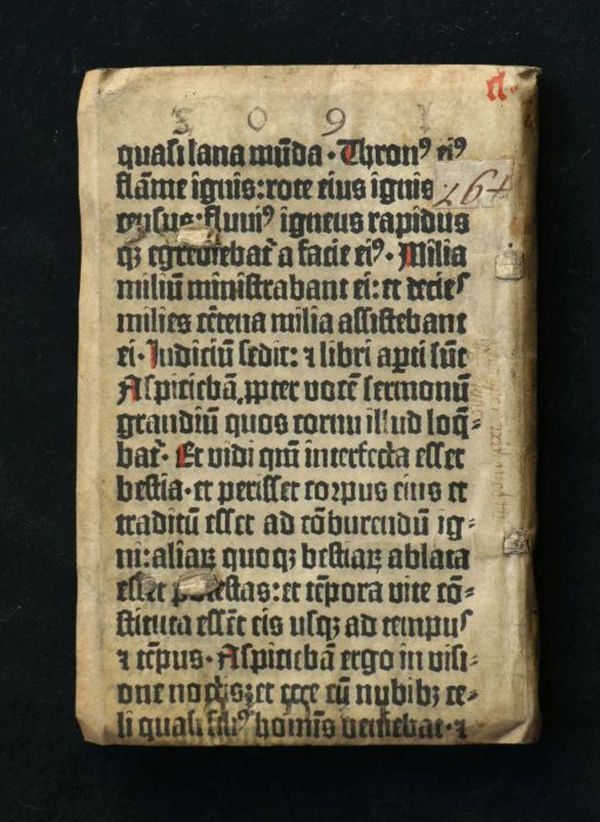 5 0 9 1
quasi lana mūda · Thronꝰ eiꝰ
flāme ignis: rote eius ignis
264
fluuiꝰ igneus rapidus
qꝫ egrediebat᷑ a facie eiꝰ · Milia
miliū ministrabant ei: et decies
milies cētena milia assistebant
ei · Iudiciū sedit: ⁊ libri apti sūt
Aspiciebā ꝓpter vocē sermonū
grandiū quos cornu illud loq̄-
bat᷑ · Et vidi qm̄ interfecta esset
bestia · et perisset corpus eius et
traditū esset ad cōburendū ig-
ni: aliaꝝ quoqꝫ bestiaꝝ ablata
esset potestas: et tēpora vite cō-
stituta essēt eis usqꝫ ad tempus
⁊ tēpus · Aspiciebā ergo in visi-
one noctis: et ecce cū nubibꝫ ce-
li quasi filiꝰ homīs veniebat · ⁊